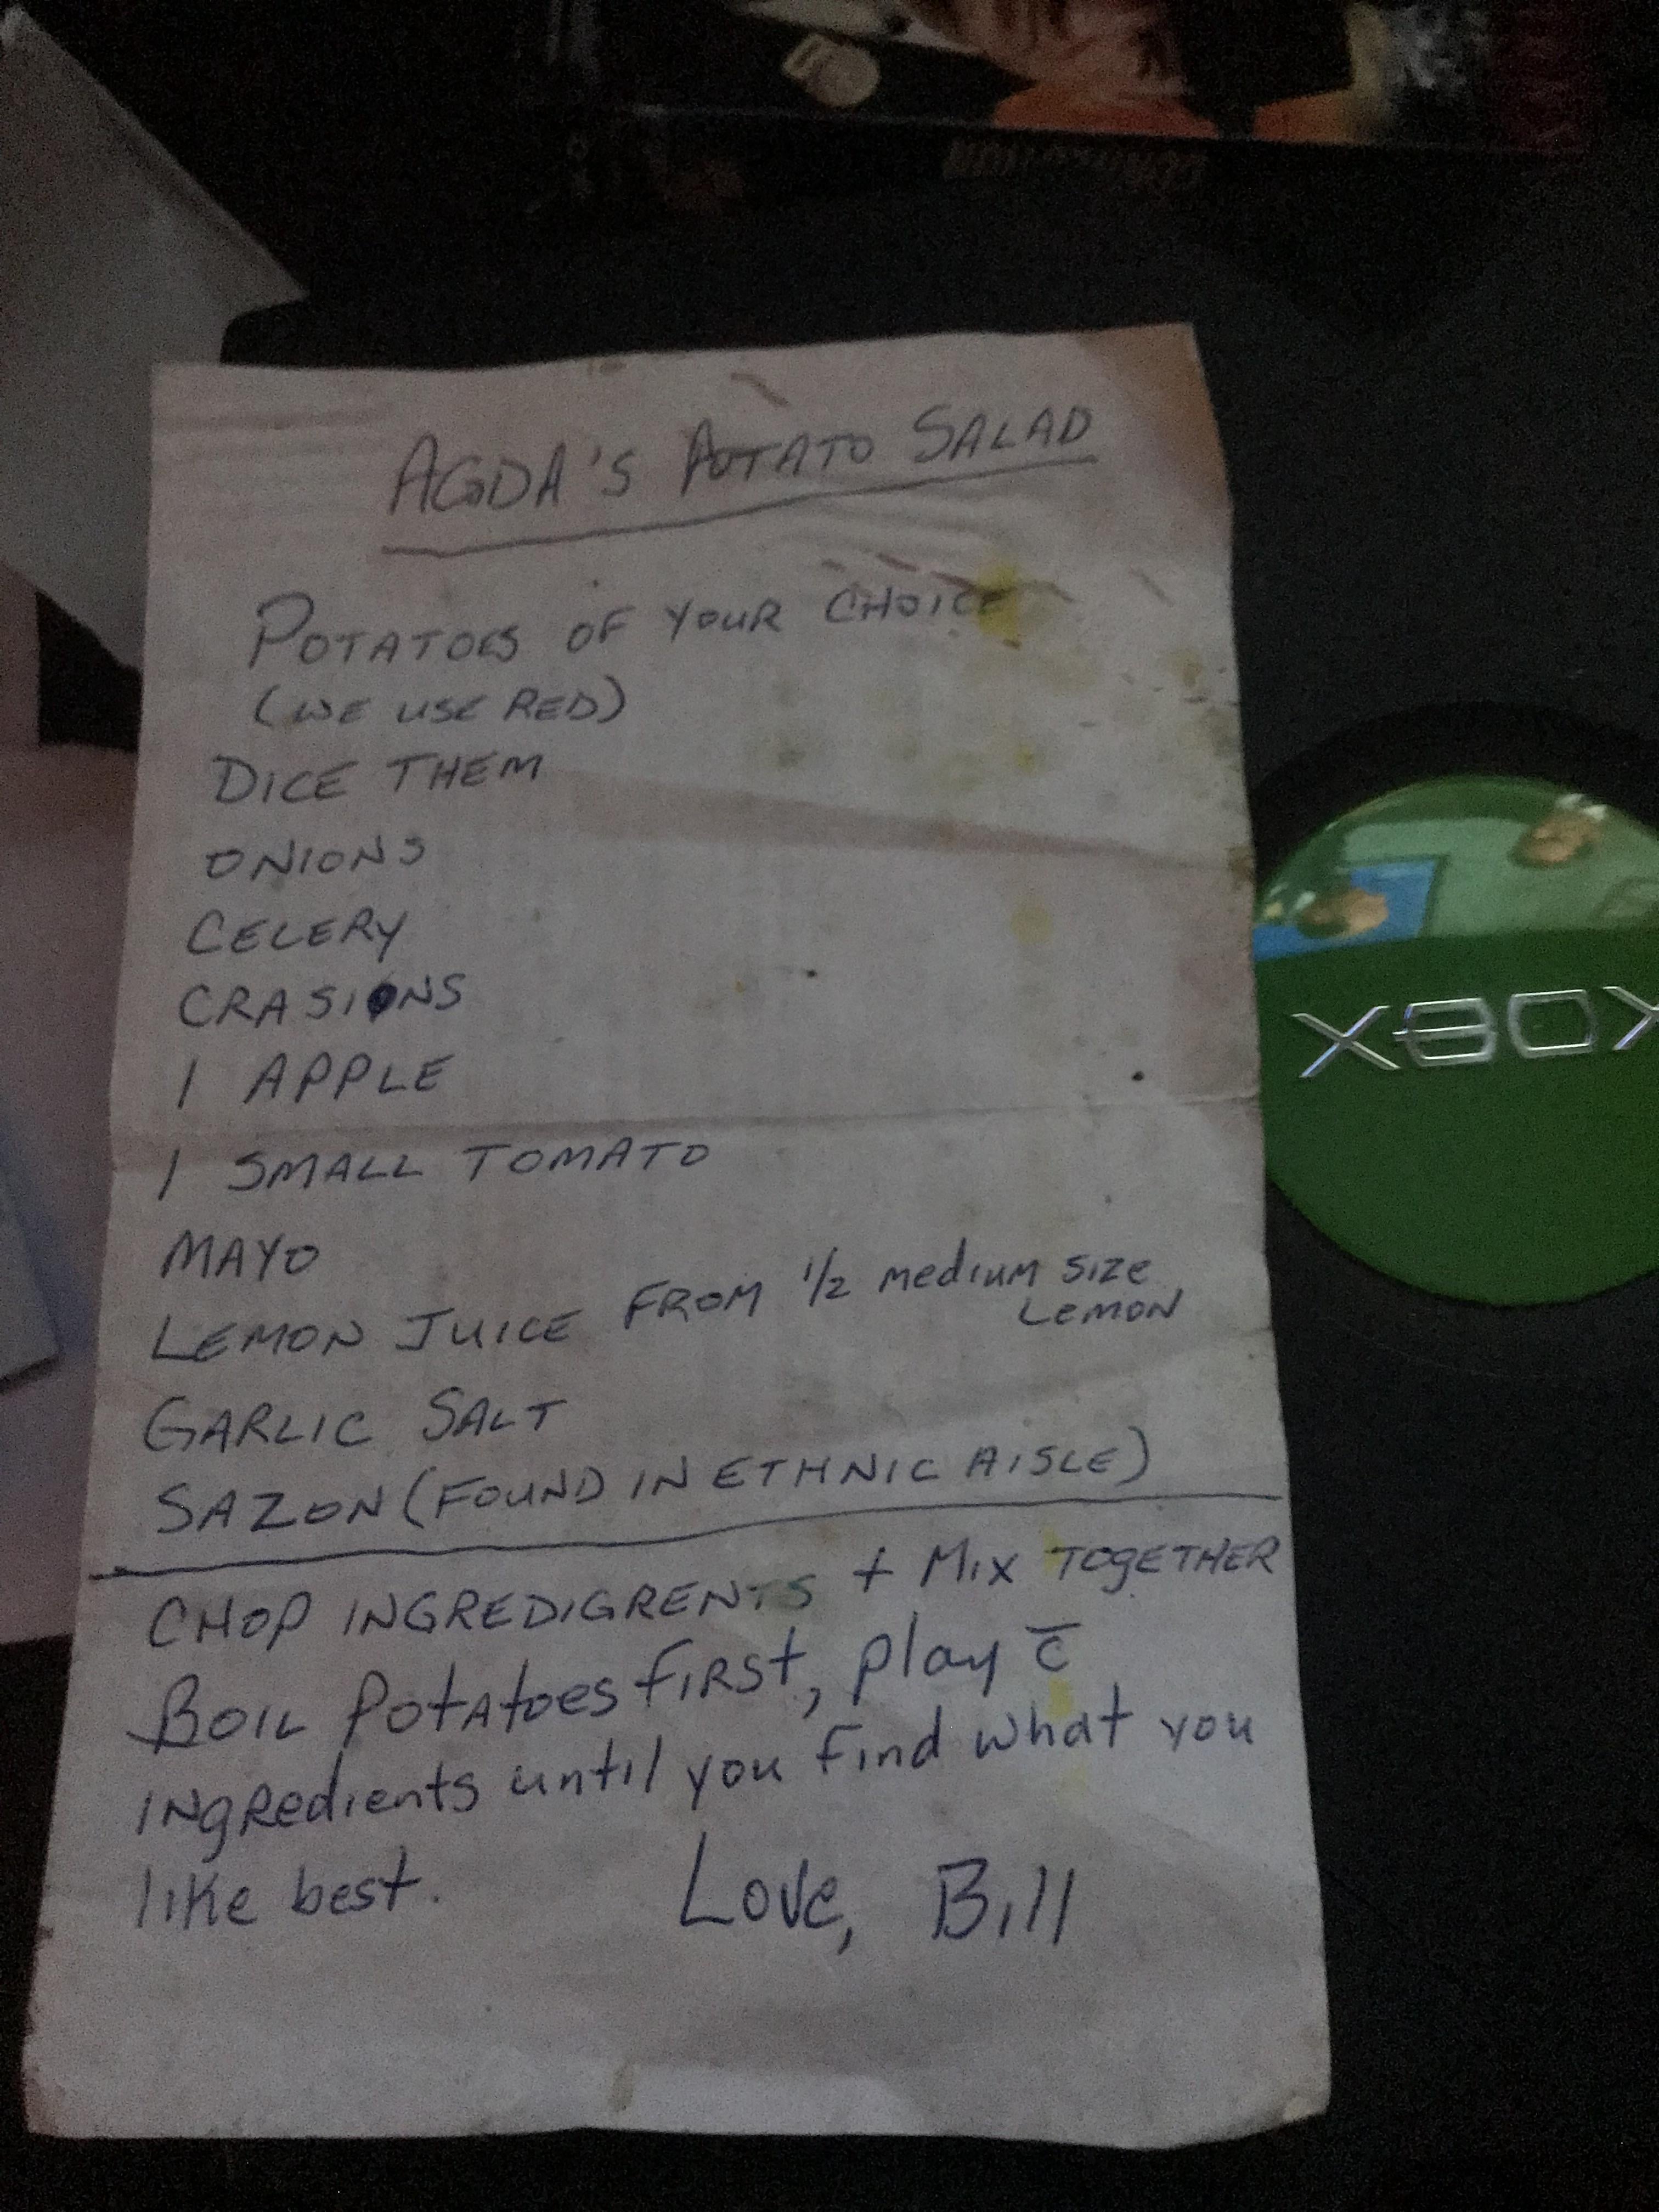 AGDA'S POTATO SALAD
POTATOES OF YOUR CHOICE
(WE USE RED)
DICE THEM
ONIONS
CELERY
CRASIONS
1 APPLE
1 SMALL TOMATO
MAYO
LEMON JUICE FROM 1/2 medium SIZE
LEMON
GARLIC SALT
SAZON (FOUND IN ETHNIC AISLE)
CHOP INGREDIGRENTS + MIX TOGETHER
BOIL POTATOES FIRST, play c̄
INgRedients until you find what you
like best. Love, Bill
XBOX